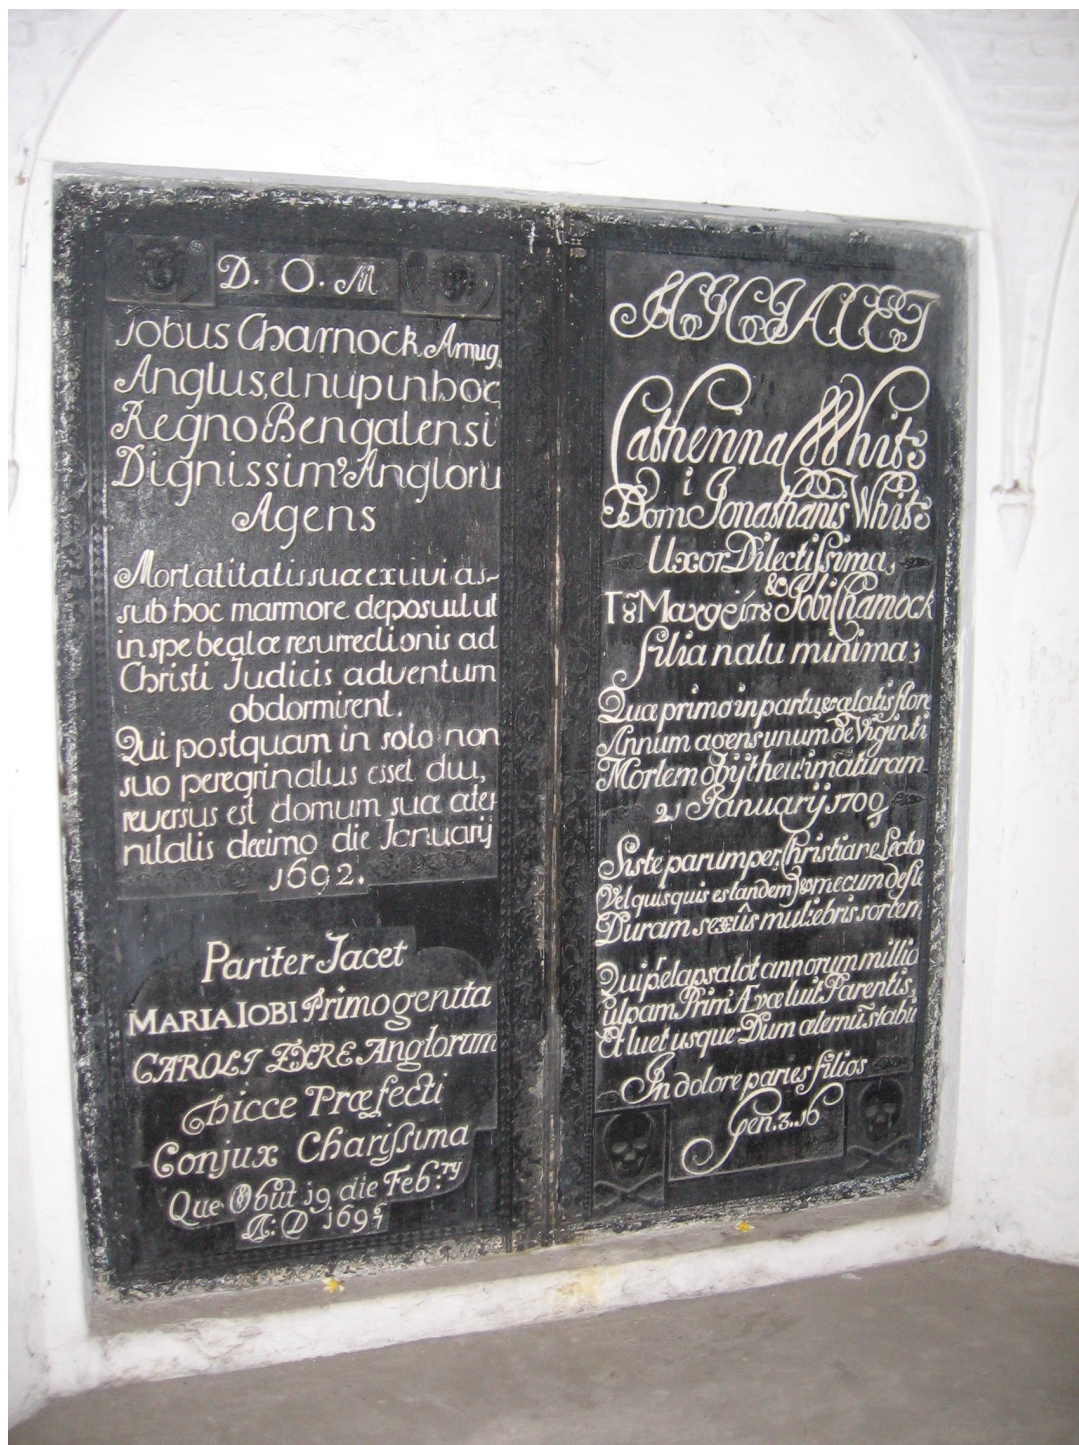 D. O. M
Iobus Charnock Armigr
Anglus, et nup in hoc
Regno Bengalensi
Dignissim⁹ Angloru
Agens
Mortalitatis suæ exuvias
sub hoc marmore deposuit ut
in spe beatæ resurrectionis ad
Christi Judicis adventum
obdormirent.
Qui postquam in solo non
suo peregrinatus esset diu,
reversus est domum suæ æter
nitatis decimo die Januarij
1692.
Pariter Jacet
MARIA IOBI Primogenita
CAROLI EYRE Anglorum
hicce Præfecti
Conjux Chariſsima
Que Obiit 19 die Feb:ry
A: D 1697
HIC JACET
Catherina White
Domi Jonathanis White
Uxor Dilectiſsima,
& Jobi Charnock
filia natu minima;
Quæ primo in partu & ætatis flore
Annum agens unum de Viginti
Mortem obijt heu! imaturam
21 Januarij 1700
Siste parumper, Christiane Lector
Vel quisquis es tandem) & mecum defle
Duram sexûs muliebris sortem
Qui p elapsa tot annorum millia
Culpam Prim Evæ luit Parentis,
Et luet usque: Dum æternũ stabit
In dolore paries filios
Gen. 3. 16